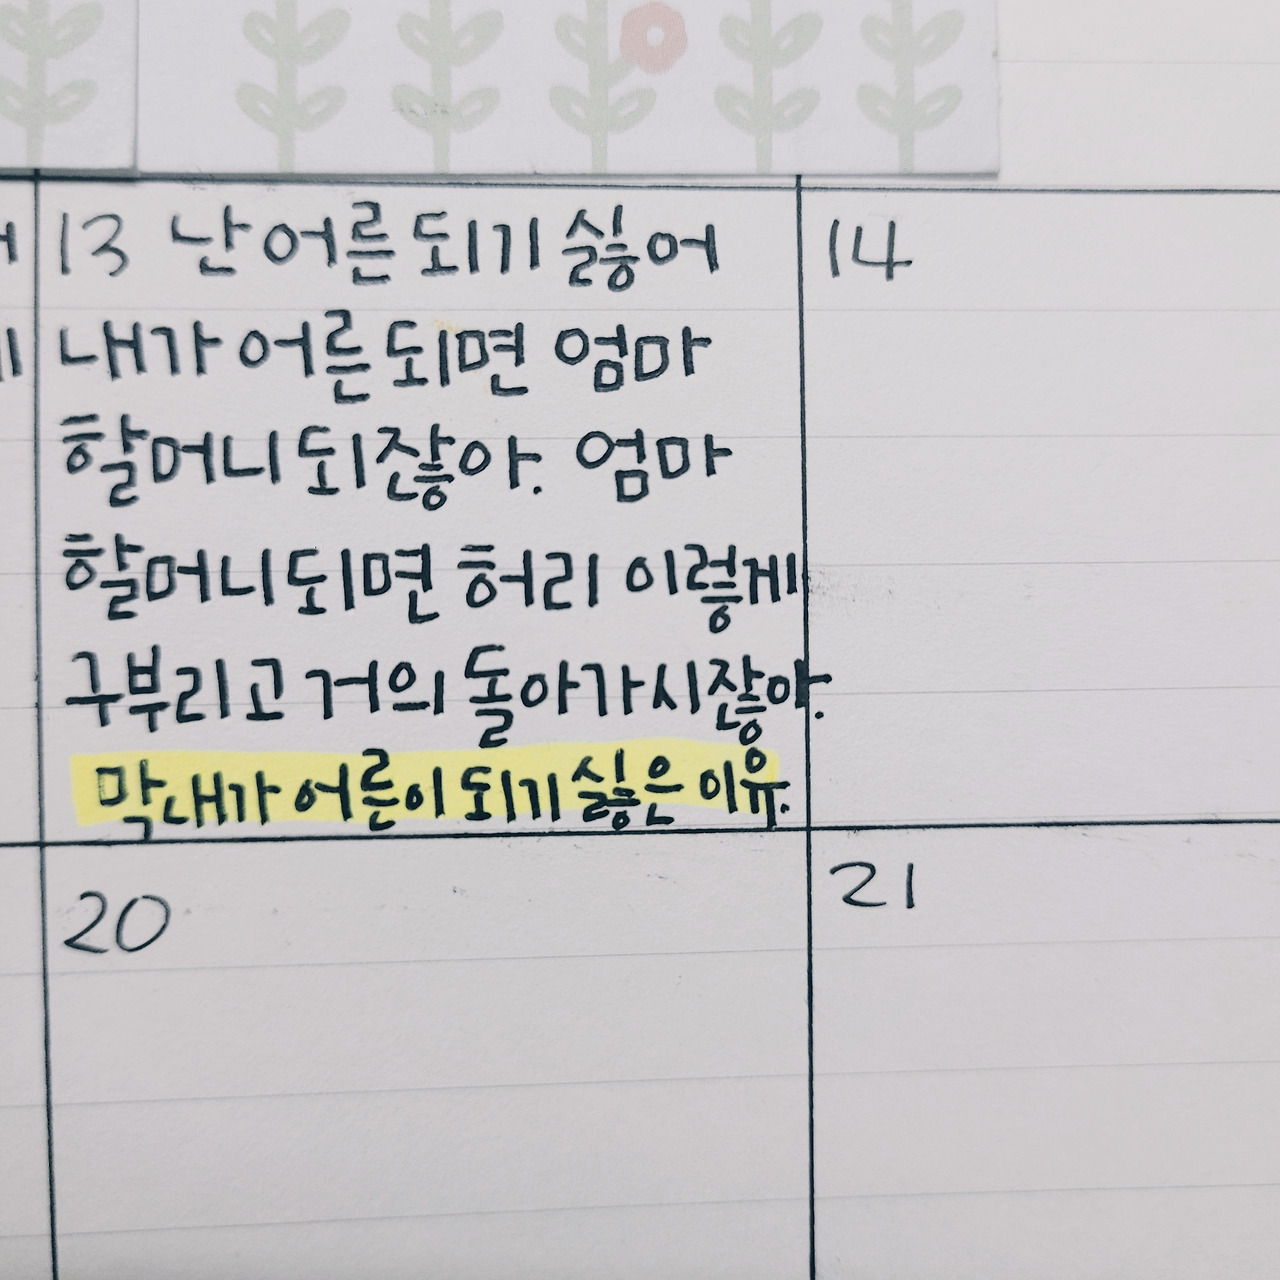 13 난 어른 되기 싫어
내가 어른 되면 엄마
할머니 되잖아. 엄마
할머니 되면 허리 이렇게
구부리고 거의 돌아가시잖아.
막내가 어른이 되기 싫은 이유.
14
20
21